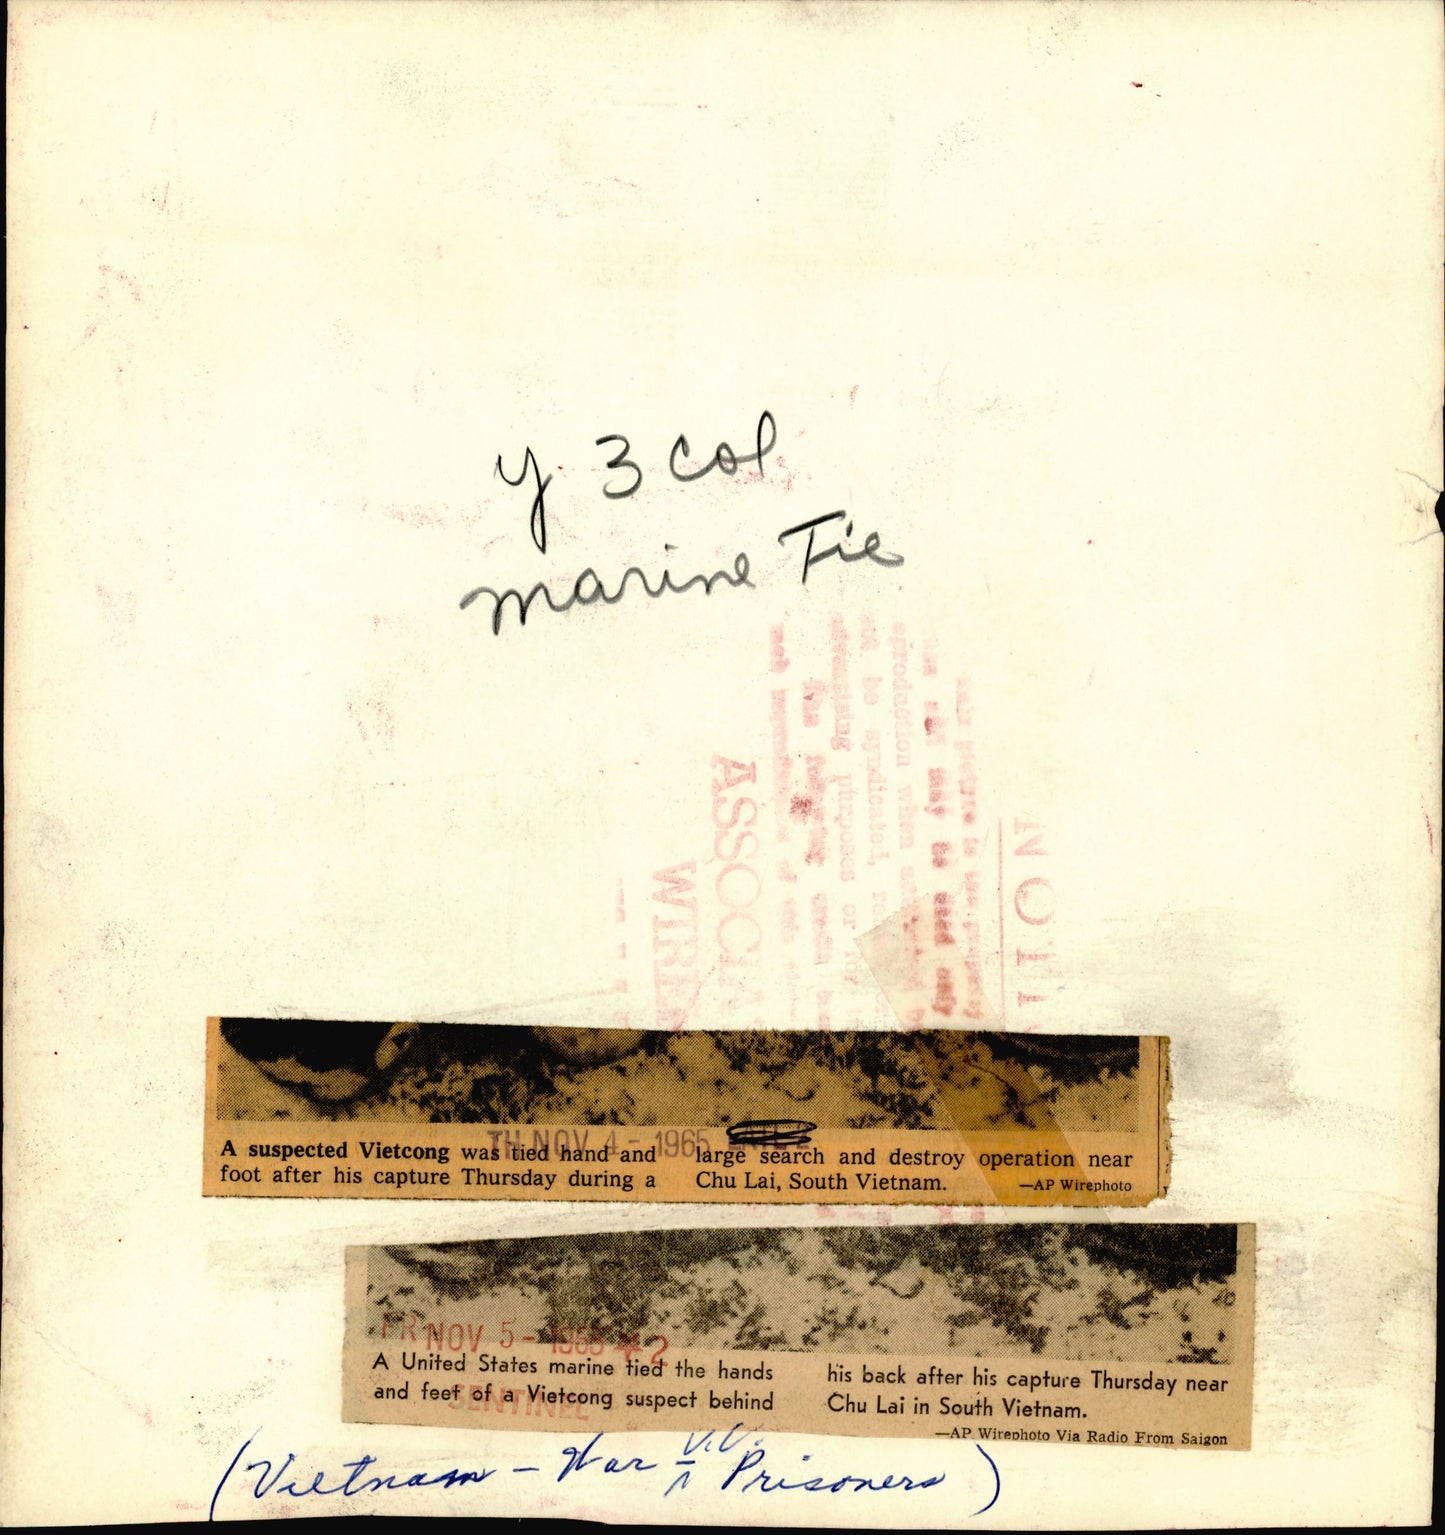 y 3 col
marine Tie
ASSOCIA
WIRE
eproduction when
not be syndicated,
advertising purposes or
may be used only
TH NOV 4 - 1965
A suspected Vietcong was tied hand and
foot after his capture Thursday during a
large search and destroy operation near
Chu Lai, South Vietnam.
—AP Wirephoto
FR NOV 5 - 1965 # 2
SENTINEL
A United States marine tied the hands
and feet of a Vietcong suspect behind
his back after his capture Thursday near
Chu Lai in South Vietnam.
—AP Wirephoto Via Radio From Saigon
V.C.
(Vietnam - War ^ Prisoners)